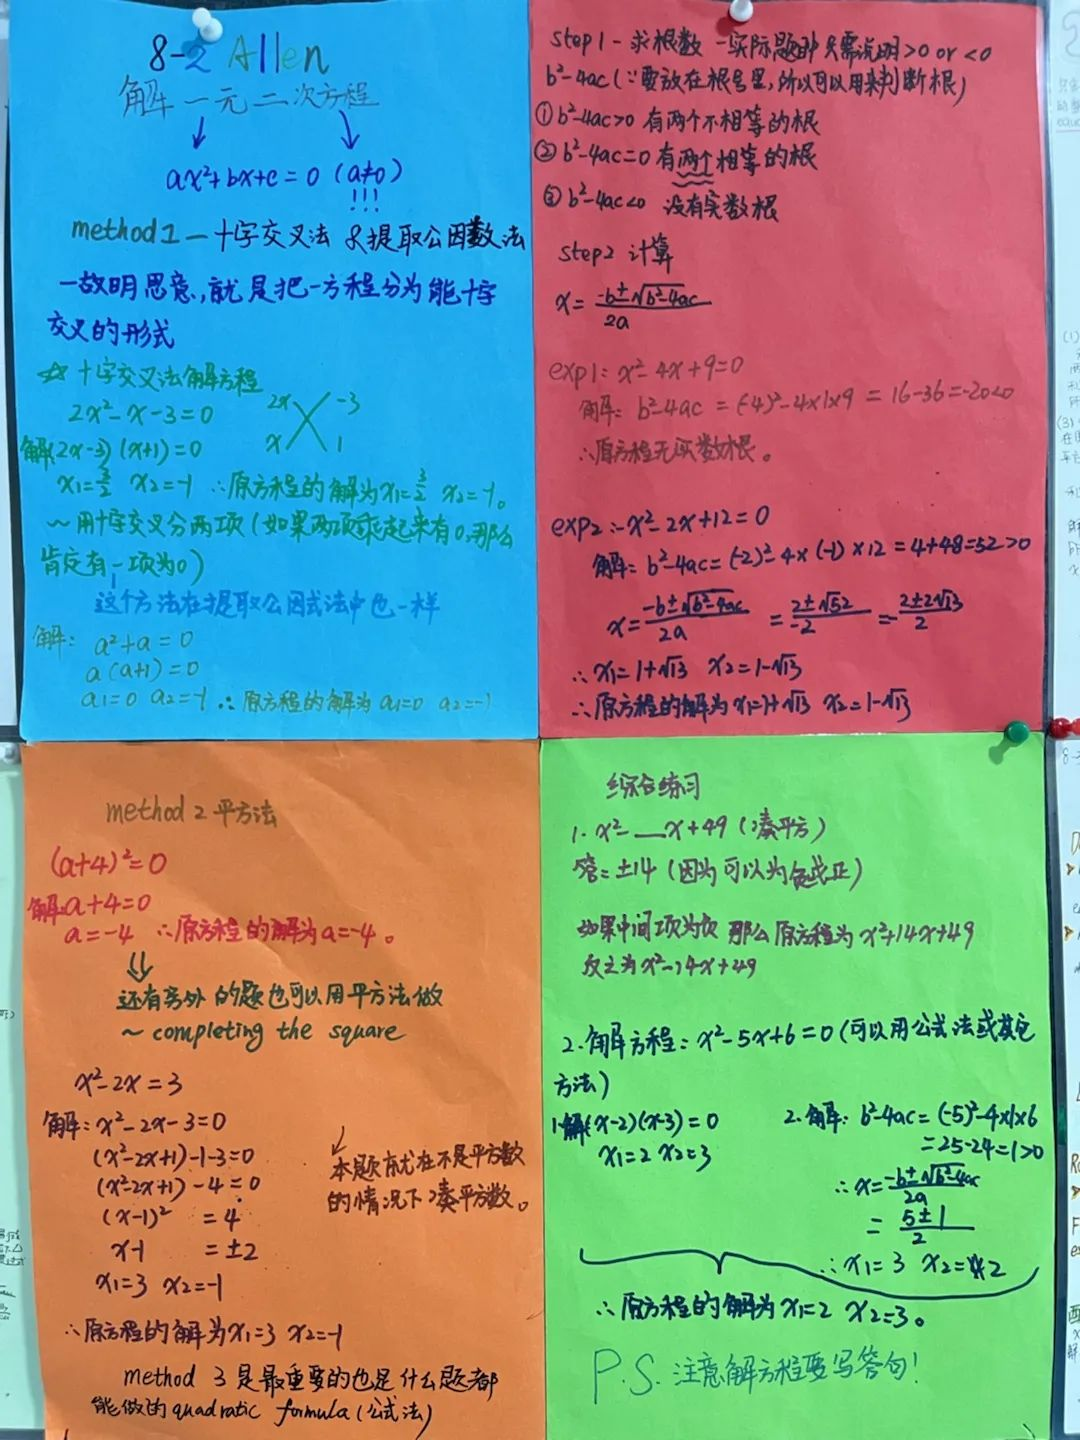 8-2 Allen
解一元二次方程
ax²+bx+c=0 (a≠0)
!!!
method 1 — 十字交叉法 &提取公因数法
一故明思意,就是把一方程分为能十字
交叉的形式
☆ 十字交叉法解方程
2x²-x-3=0
2x -3
x 1
解:(2x-3)(x+1)=0
x₁=3/2 x₂=-1 ∴原方程的解为x₁=3/2 x₂=-1。
～用十字交叉分两项(如果两项乘起来有0,那么
肯定有一项为0)
这个方法在提取公因式法中也一样
解: a²+a=0
a(a+1)=0
a₁=0 a₂=-1 ∴原方程的解为 a₁=0 a₂=-1
step1-求根数 -实际题时 只需说明>0 or <0
b²-4ac(∵要放在根号里,所以可以用来判断根)
①b²-4ac>0 有两个不相等的根
②b²-4ac=0 有两个相等的根
③b²-4ac<0 没有实数根
step2 计算
x= -b±√b²-4ac / 2a
exp1: x²-4x+9=0
解: b²-4ac = (-4)²-4×1×9 = 16-36=-20<0
∴原方程无实数根。
exp2: -x²-2x+12=0
解: b²-4ac=(-2)²-4×(-1)×12=4+48=52>0
x= -b±√b²-4ac / 2a = 2±√52 / -2 = - 2±2√13 / 2
∴x₁=1+√13 x₂=1-√13
∴原方程的解为x₁=1+√13 x₂=1-√13
method 2 平方法
(a+4)²=0
解:a+4=0
a=-4 ∴原方程的解为a=-4。
还有另外的题也可以用平方法做
～ completing the square
x²-2x=3
解: x²-2x-3=0
(x²-2x+1)-1-3=0
(x²-2x+1)-4=0
(x-1)² =4
x-1 =±2
x₁=3 x₂=-1
本题就在不是平方数
的情况下凑平方数。
∴原方程的解为x₁=3 x₂=-1
method 3 是最重要的也是什么题都
能做的quadratic formula(公式法)
综合练习
1. x²-__x+49 (凑平方)
答=±14 (因为可以为负或正)
如果中间项为负 那么原方程为x²+14x+49
反之为x²-14x+49
2.解方程: x²-5x+6=0(可以用公式法或其它
方法)
1.解(x-2)(x-3)=0
x₁=2 x₂=3
2.解: b²-4ac=(-5)²-4×1×6
=25-24=1>0
∴x= -b±√b²-4ac / 2a
= 5±1 / 2
∴x₁=3 x₂=2
∴原方程的解为x₁=2 x₂=3。
P.S. 注意解方程要写答句!